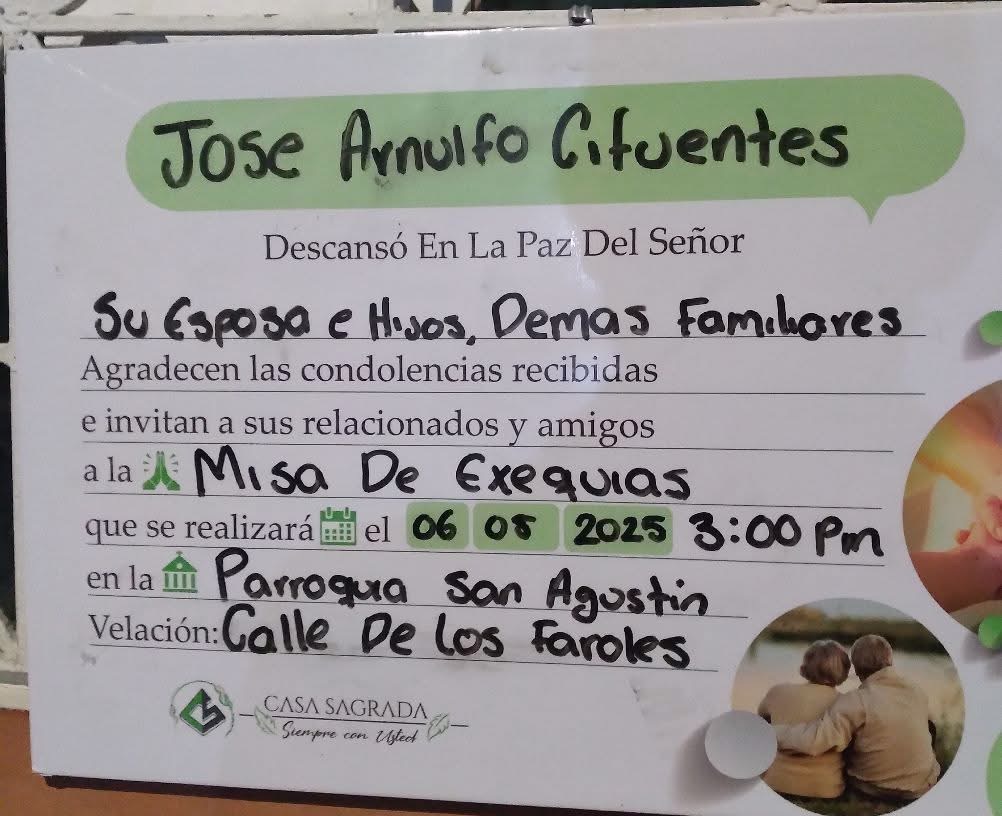 Jose Arnulfo Cifuentes
Descansó En La Paz Del Señor
Su Esposa e Hijos, Demas Familiares
Agradecen las condolencias recibidas
e invitan a sus relacionados y amigos
a la Misa De Exequias
que se realizará el 06 05 2025 3:00 Pm
en la Parroquia San Agustin
Velación: Calle De Los Faroles
CASA SAGRADA
Siempre con Usted